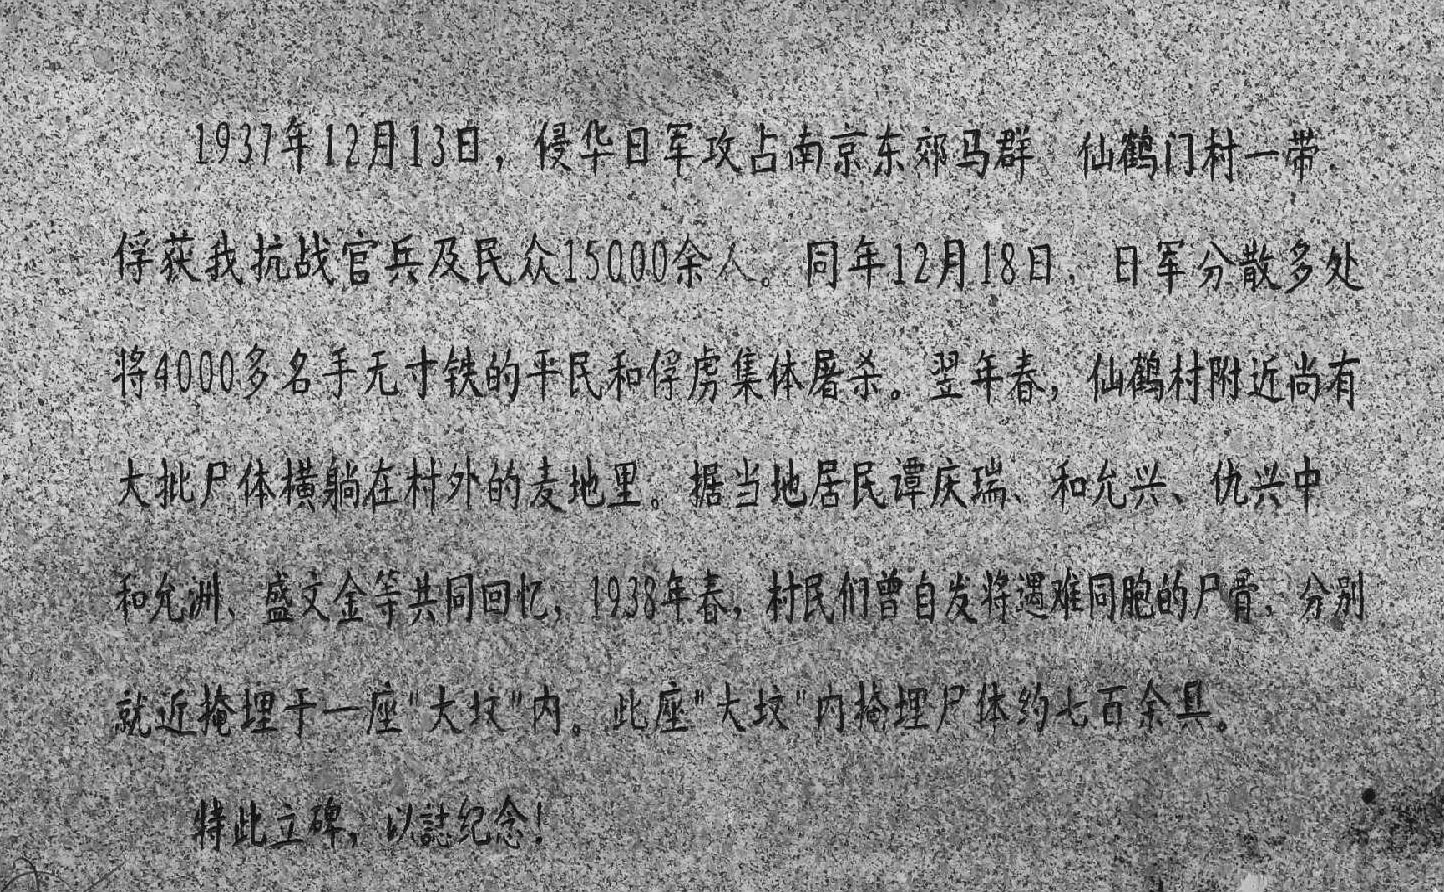 1937年12月13日，侵华日军攻占南京东郊马群 仙鹤门村一带，
俘获我抗战官兵及民众15000余人。同年12月18日，日军分散多处
将4000多名手无寸铁的平民和俘虏集体屠杀。翌年春，仙鹤村附近尚有
大批尸体横躺在村外的麦地里。据当地居民谭庆瑞、和允兴、仇兴中
和允洲、盛文金等共同回忆，1938年春，村民们曾自发将遇难同胞的尸骨，分别
就近掩埋于一座"大坟"内。此座"大坟"内掩埋尸体约七百余具。
特此立碑，以誌纪念！